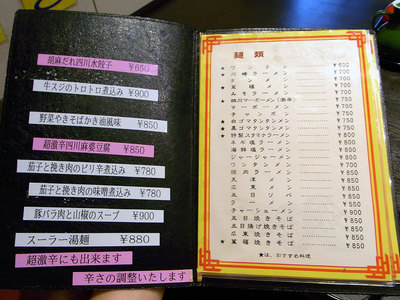 胡麻だれ四川水餃子 ¥650
牛スジのトロトロ煮込み ¥900
野菜やきそばかき油風味 ¥850
超激辛四川麻婆豆腐 ¥850
茄子と挽き肉のピリ辛煮込み ¥780
茄子と挽き肉の味噌煮込み ¥780
豚バラ肉と山椒のスープ ¥900
スーラー湯麺 ¥880
超激辛にも出来ます
辛さの調整いたします
麺類
ワンタン ¥600
★川崎ラーメン ¥700
ラーメン
★萬福メン ¥700
みそラーメン ¥700
★四川マーボーメン(激辛) ¥750
マーボーメン ¥750
チャンポン ¥750
★白ゴマタンタンメン ¥750
★黒ゴマタンタンメン ¥750
★特製スタミナラーメン
ネギ塩ラーメン ¥800
海鮮塩ラーメン ¥800
ジャージャーメン ¥800
ワンタンメン ¥800
天津メン ¥850
広東メン ¥850
五目ソバ ¥850
チャーシューメン ¥900
五目焼きそば ¥850
五目揚げ焼きそば ¥850
広東焼きそば ¥850
★萬福焼きそば ¥850
★は、おすすめ料理